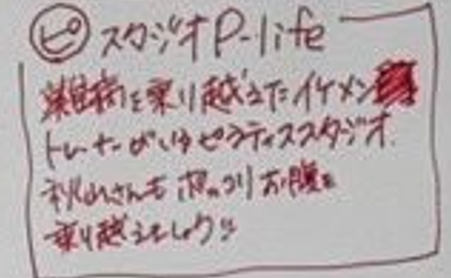 ピ スタジオ P-life
難病を乗り越えたイケメン
トレーナーがいるピラティススタジオ.
秋山さんもポッコリお腹を
乗り越えましょう!!